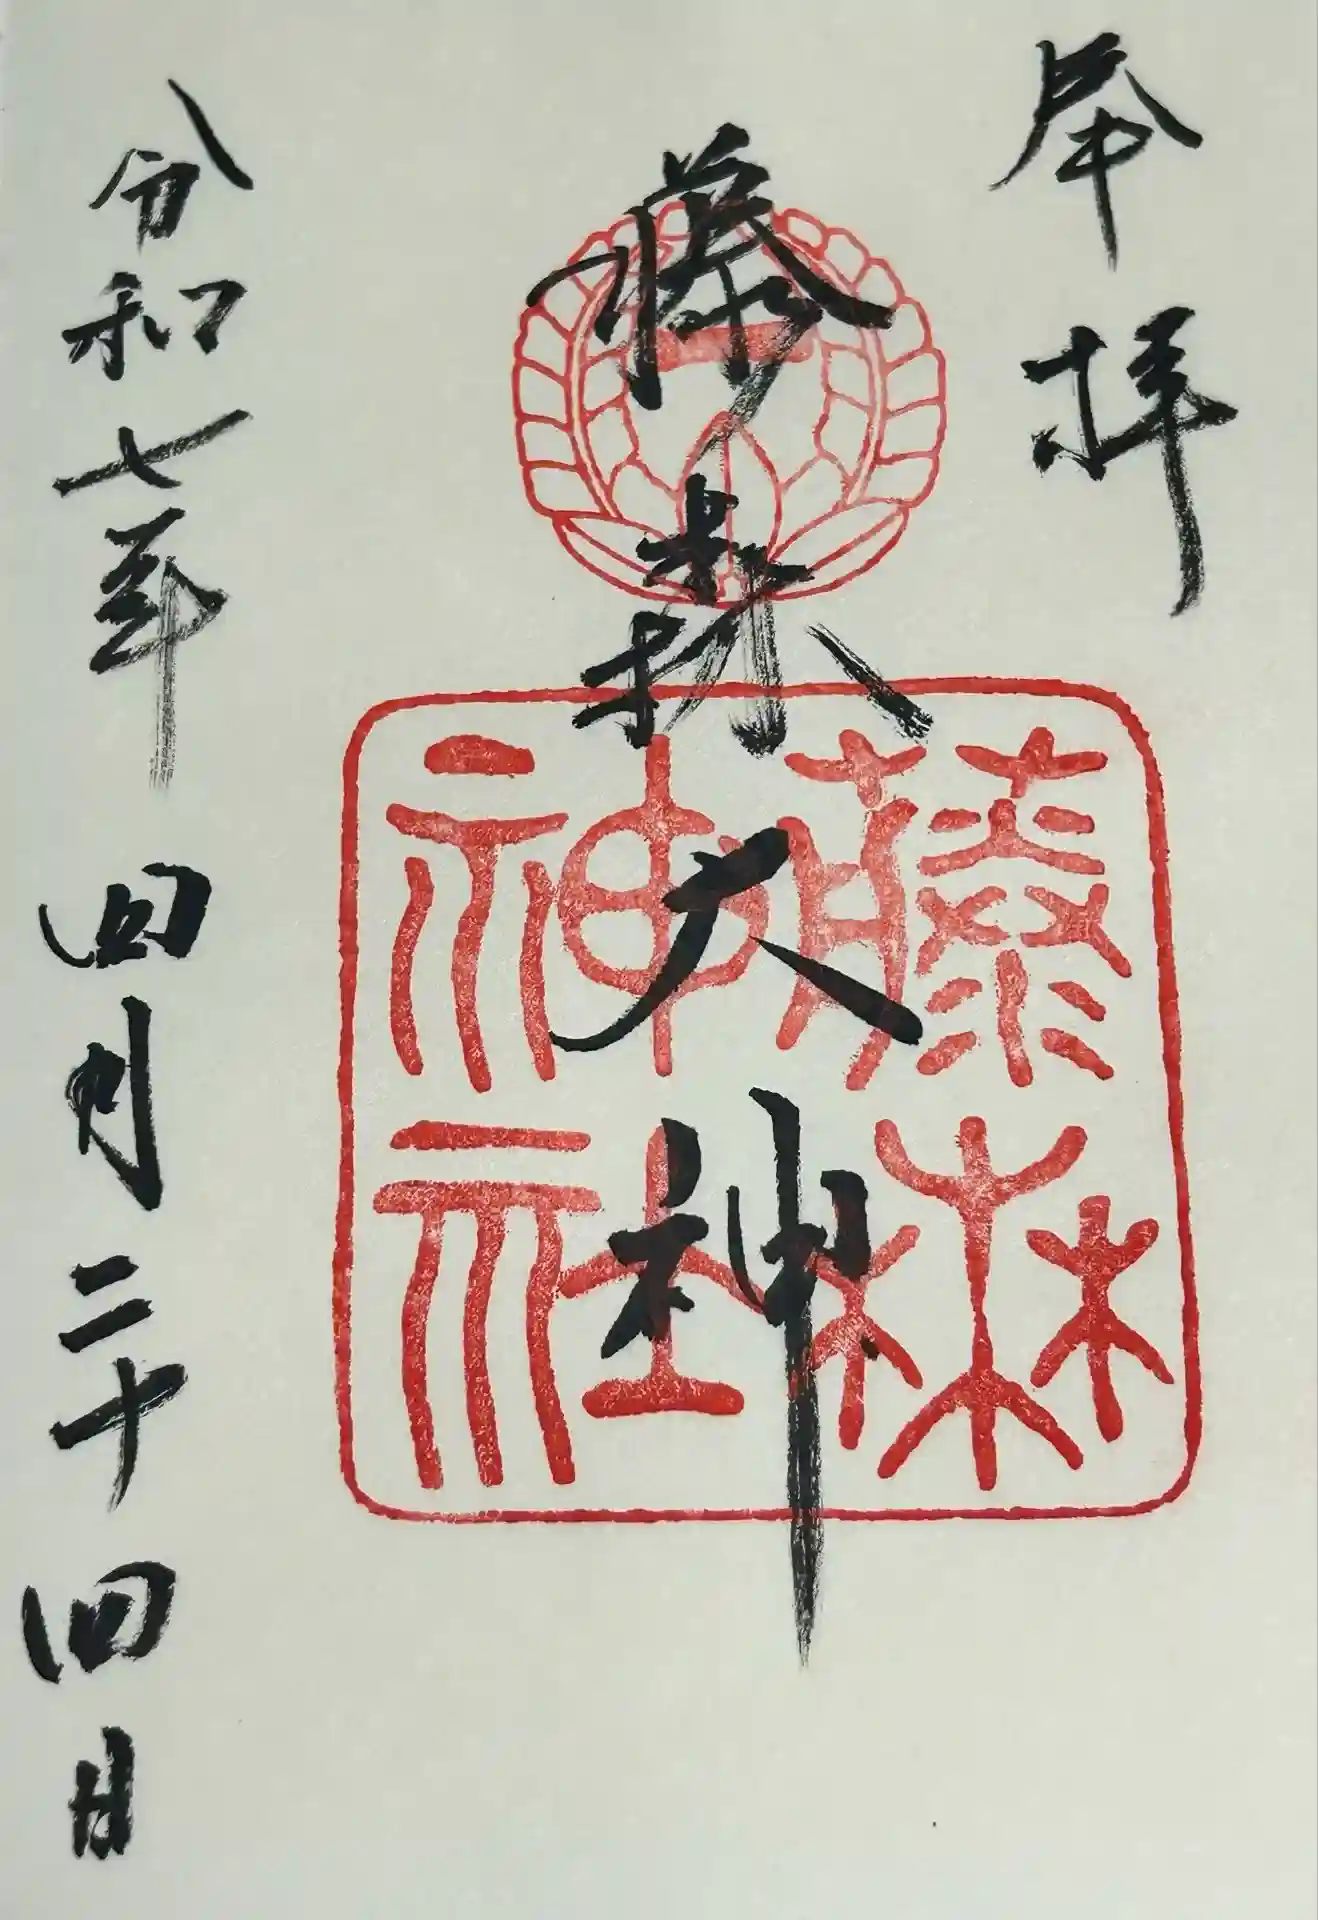 奉拝
藤森大神
藤森神社
令和七年四月二十四日